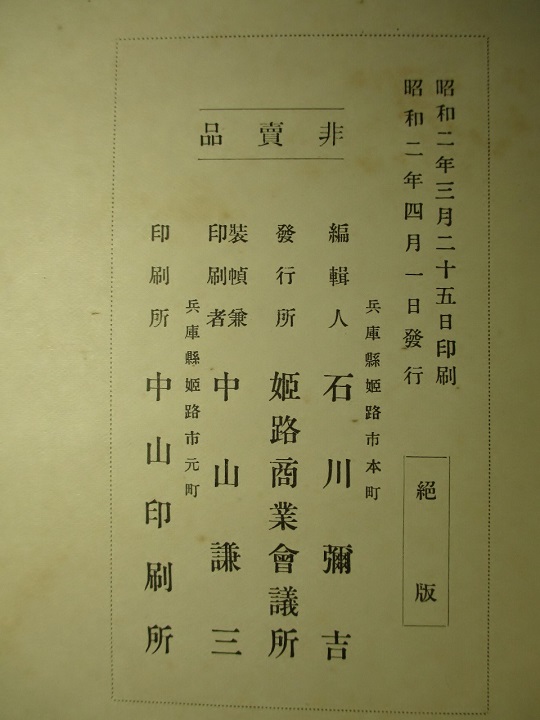 昭和二年三月二十五日印刷
昭和二年四月一日發行
絕版
非賣品
兵庫縣姬路市本町
編輯人 石川彌吉
發行所 姬路商業會議所
裝幀兼
印刷者 中山謙三
兵庫縣姬路市元町
印刷所 中山印刷所